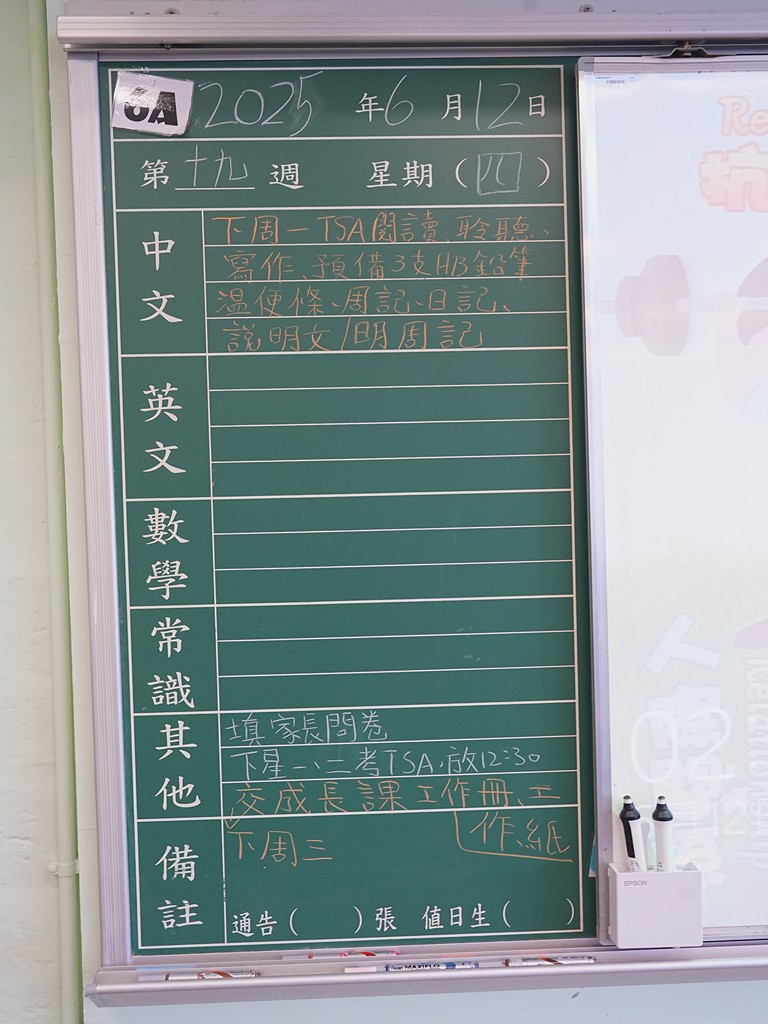 6A 2025年6月12日
第十九週 星期（四）
中文
下周一TSA閱讀、聆聽、
寫作、預備3支HB鉛筆
溫便條、周記、日記、
說明文/明周記
英文
數學
常識
其他
填家長問卷
下星一、二考TSA,放12:30
交成長課工作冊、工
作紙
備註
下周三
通告（ ）張 值日生（ ）
EPSON